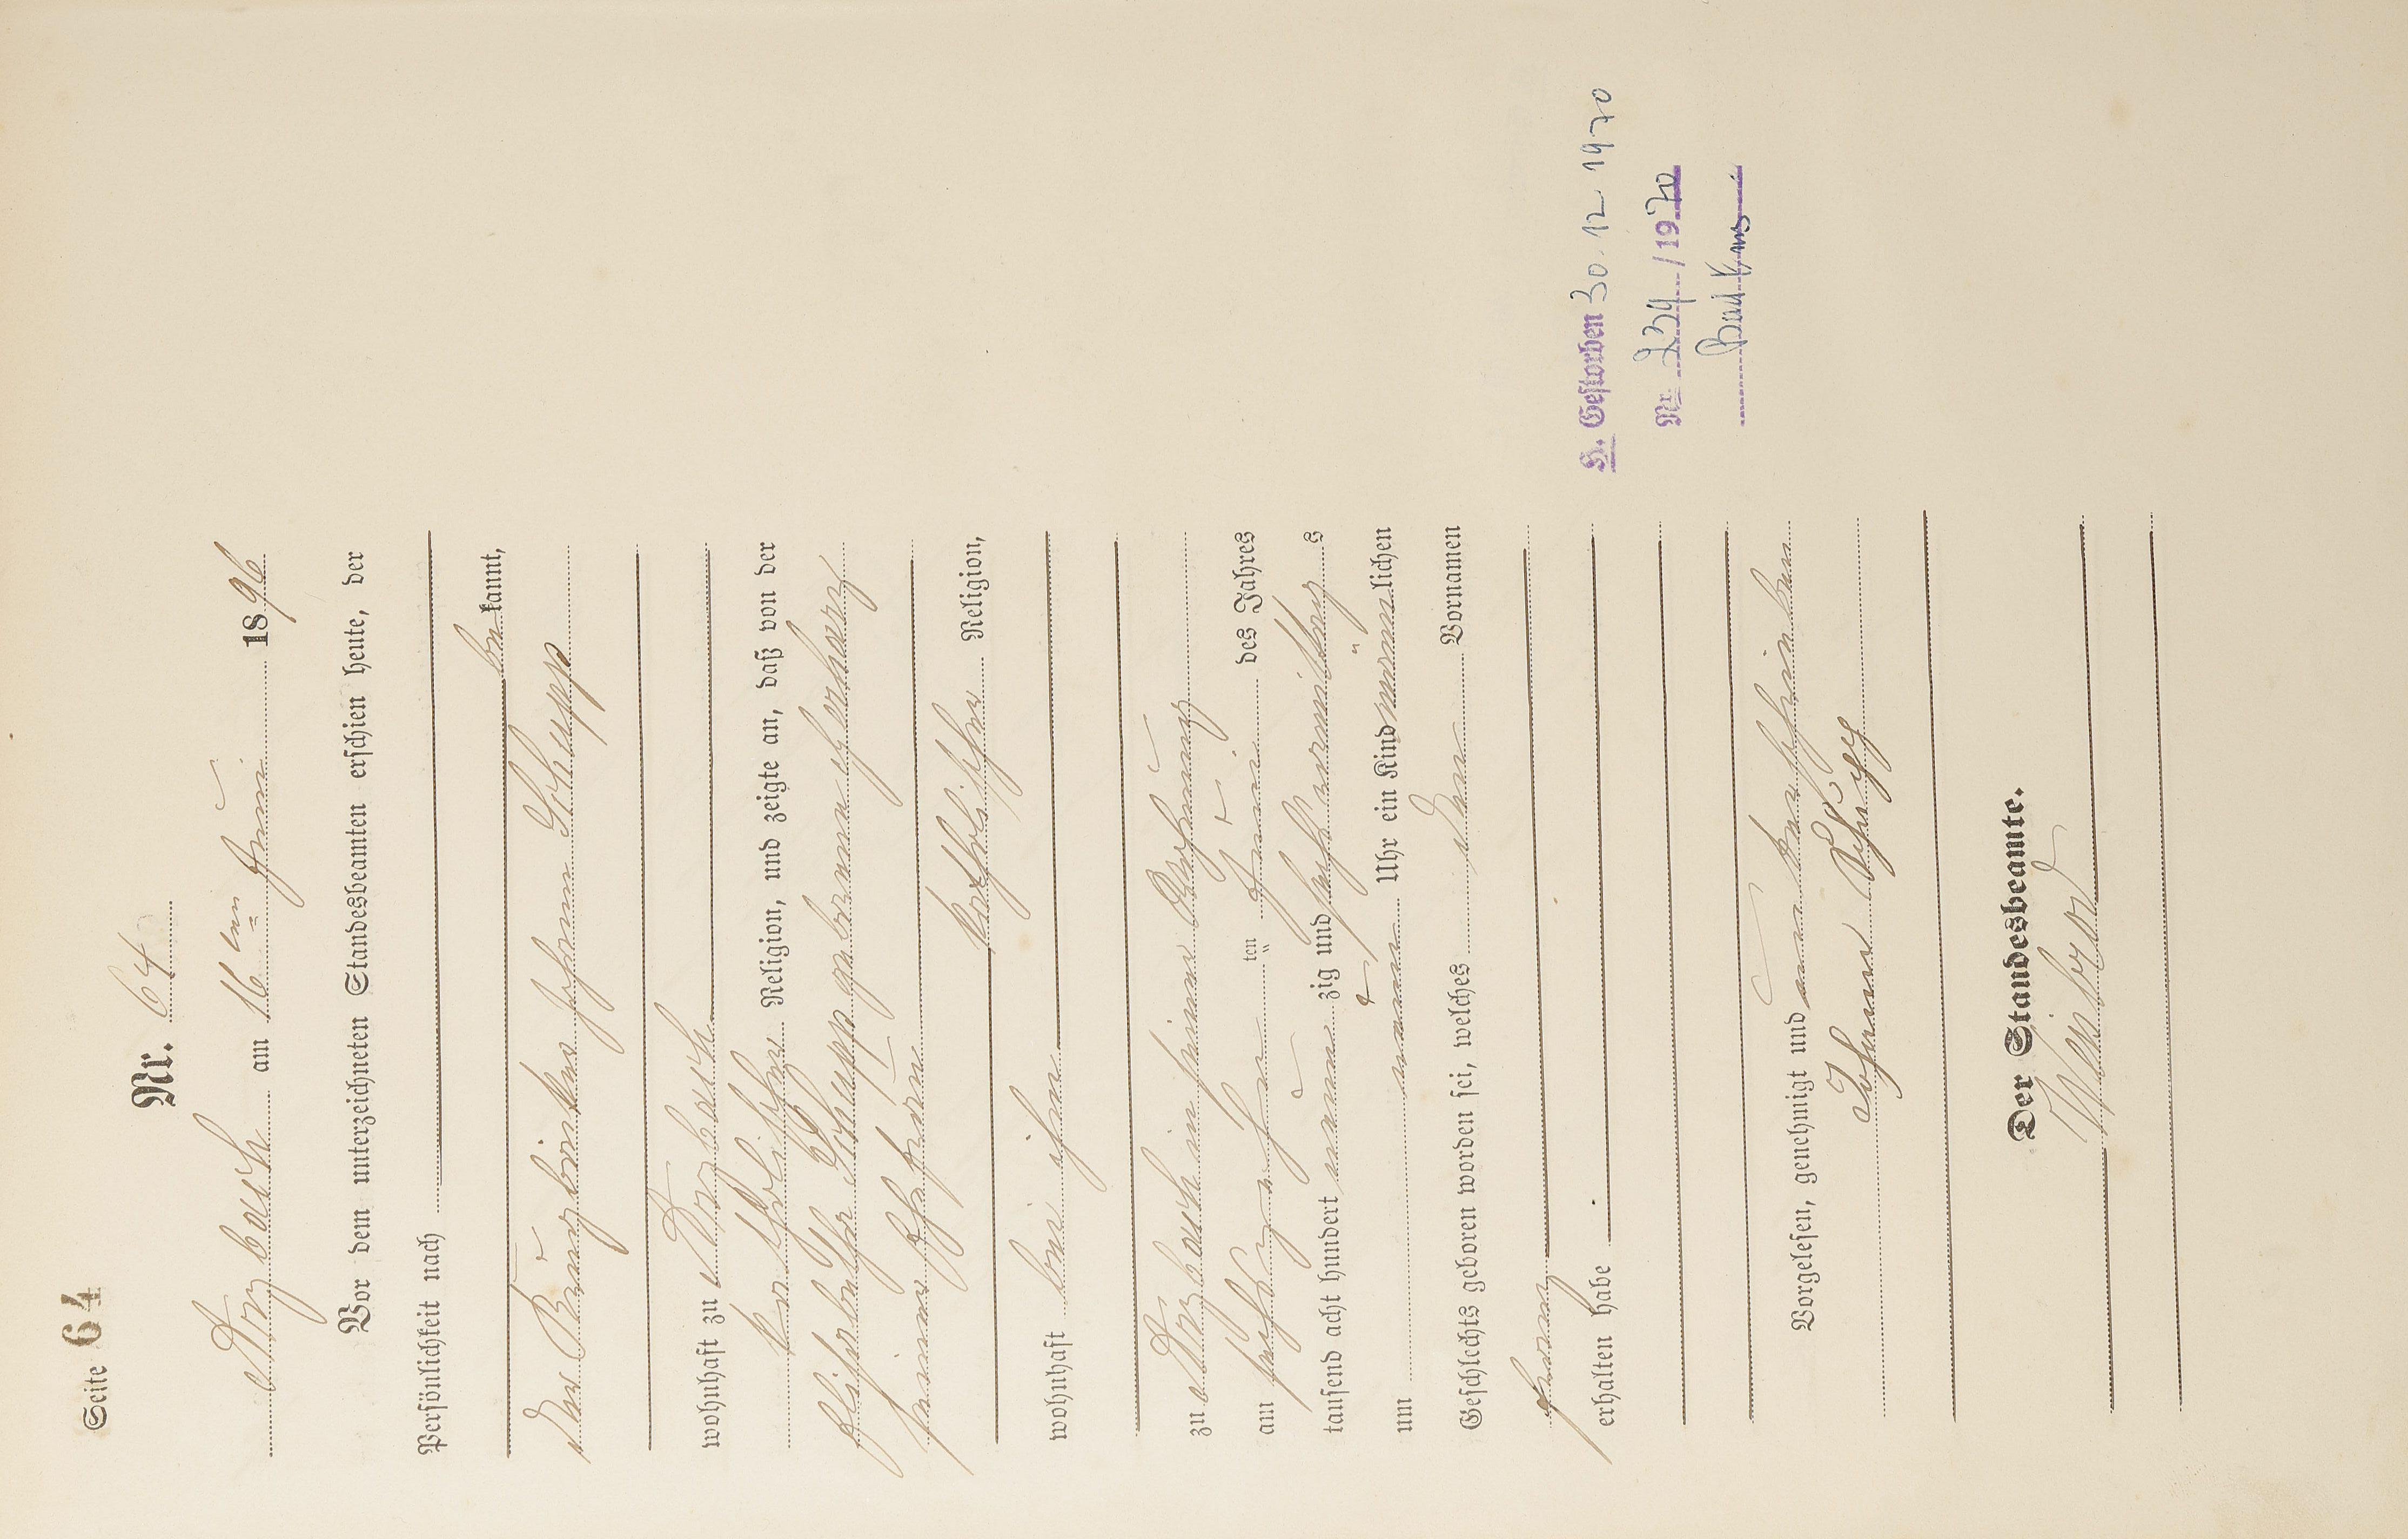 Seite 64
Nr. 64
Arzbach am 16ten Juni 1896
Vor dem unterzeichneten Standesbeamten erschien heute, der
Persönlichkeit nach
be kannt,
der Johann Schupp
wohnhaft zu Arzbach
katholischer Religion, und zeigte an, daß von der
Elisabetha Schupp geborenen
seiner Ehefrau
katholischer Religion,
wohnhaft bei ihm
zu Arzbach in seiner Wohnung
am ten Juni des Jahres
tausend acht hundert neun zig und sechs Vormittag s
um neun Uhr ein Kind männ lichen
Geschlechts geboren worden sei, welches den Vornamen
erhalten habe .
Vorgelesen, genehmigt und unterschrieben
Johann Schupp
Der Standesbeamte.
H. Gestorben 30. 12 1970
Nr. 234 / 19 70
Bad Ems